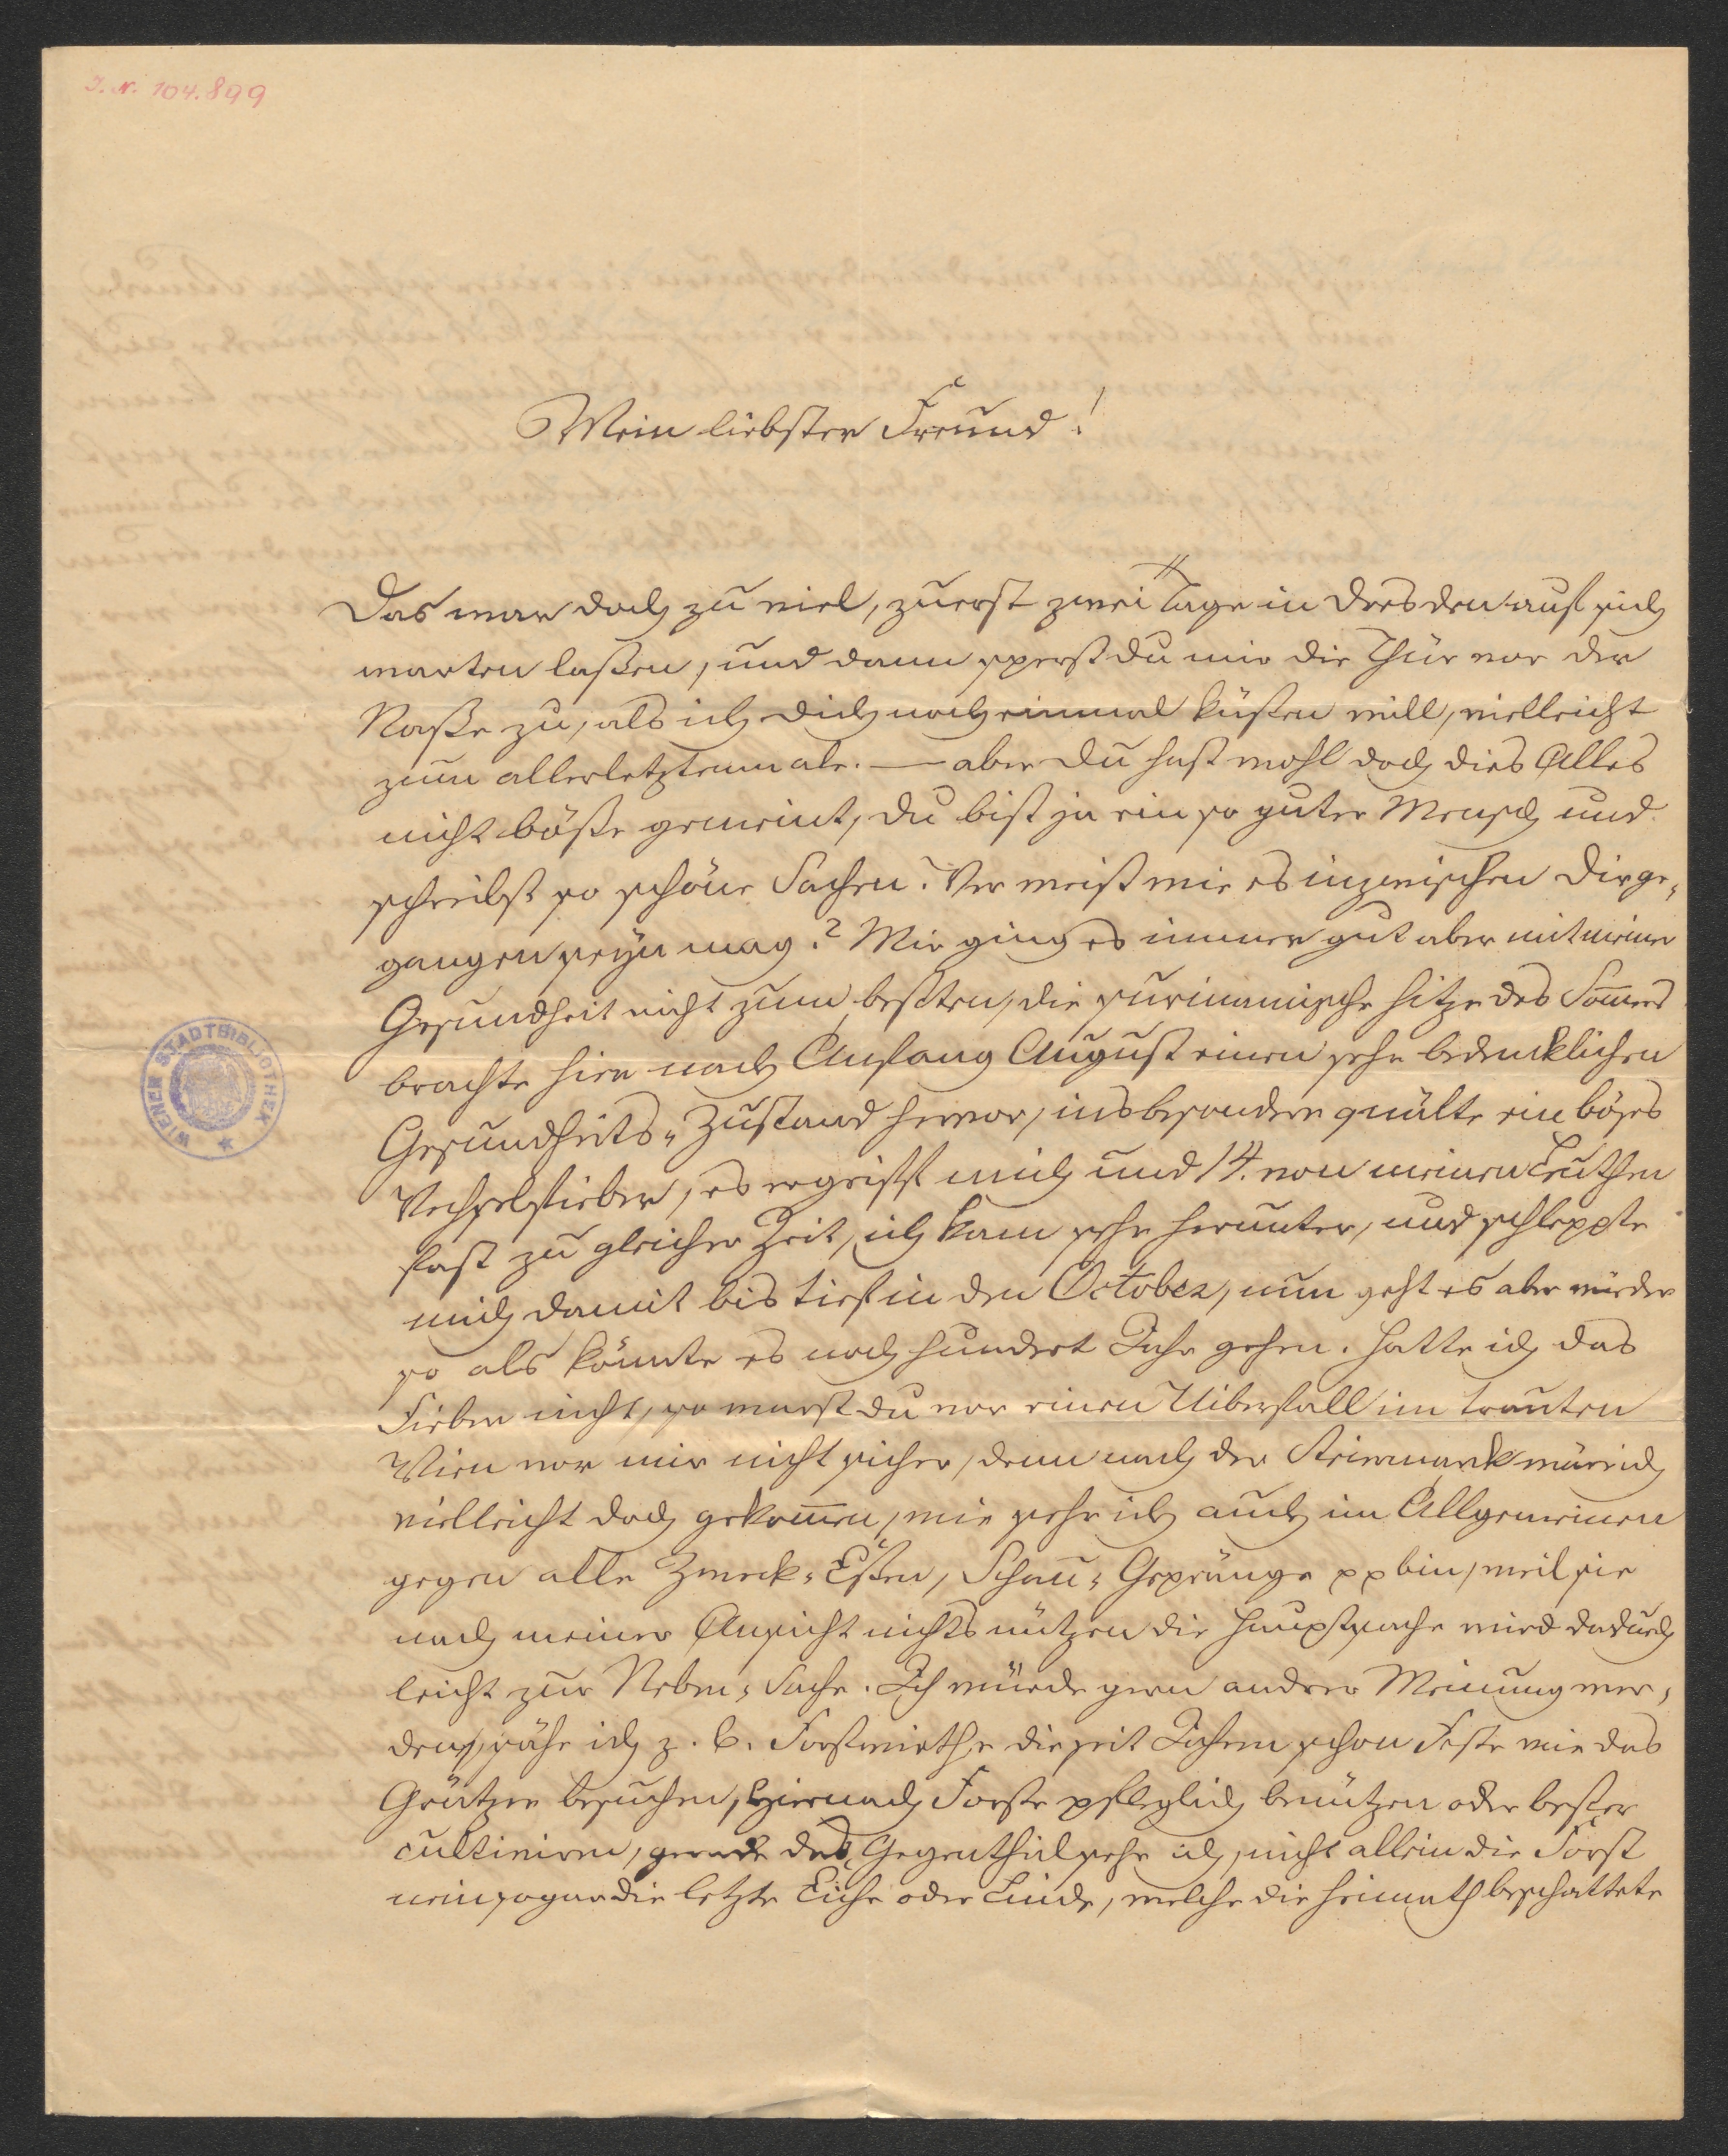 I. N. 104.899
Mein liebster Freund!
Das war doch zu viel, zuerst zwei Tage in Dresden auf sich
warten laßen, und dann sperst du mir die Thür vor der
Naße zu, als ich dich noch einmal küßen will, vielleicht
zum allerletztenmale. — aber Du hast wohl doch dies Alles
nicht böße gemeint, du bist ja ein so guter Mensch und
schreibst so schöne Sachen. Wer weiß wie es inzwischen Dir ge-
gangen seyn mag? Mir ging es immer gut aber mit meiner
Gesundheit nicht zum beßten, die surinamische Hitze des Somers
brachte hier nach Anfang August einen sehr bedencklichen
Gesundheits-Zustand hervor, insbesondere quälte ein böses
Wechselfieber, es ergriff mich und 14. von meinen Leuthen
fast zu gleicher Zeit, ich kam sehr herunter, und schleppte
mich damit bis tief in den October, nun geht es aber wieder
so als könnte es noch hundert Jahr gehen. Hatte ich das
Fieber nicht, so warst du vor einen Uiberfall im trauten
Wien vor mir nicht sicher, denn nach der Steiermarck wäre ich
vielleicht doch gekomen, wie sehr ich auch im Allgemeinen
gegen alle Zweck-Eßen, Schau-Gepränge pp bin, weil sie
nach meiner Ansicht nichts nützen die Hauptsache wird dadurch
leicht zur Neben-Sache. Ich würde gern andrer Meinung wer-
den, sähe ich z. B. Forstwirthe die seit Jahren schon Feste wie das
Grätzer besuchen, hiernach Forste pfleglich benützen oder beßer
cultiviren, gerade das Gegentheil sehe ich, nicht allein die Forst
nein sogar die letzte Eiche oder Linde, welche die Heimath beschattete
WIENER STADTBIBLIOTHEK